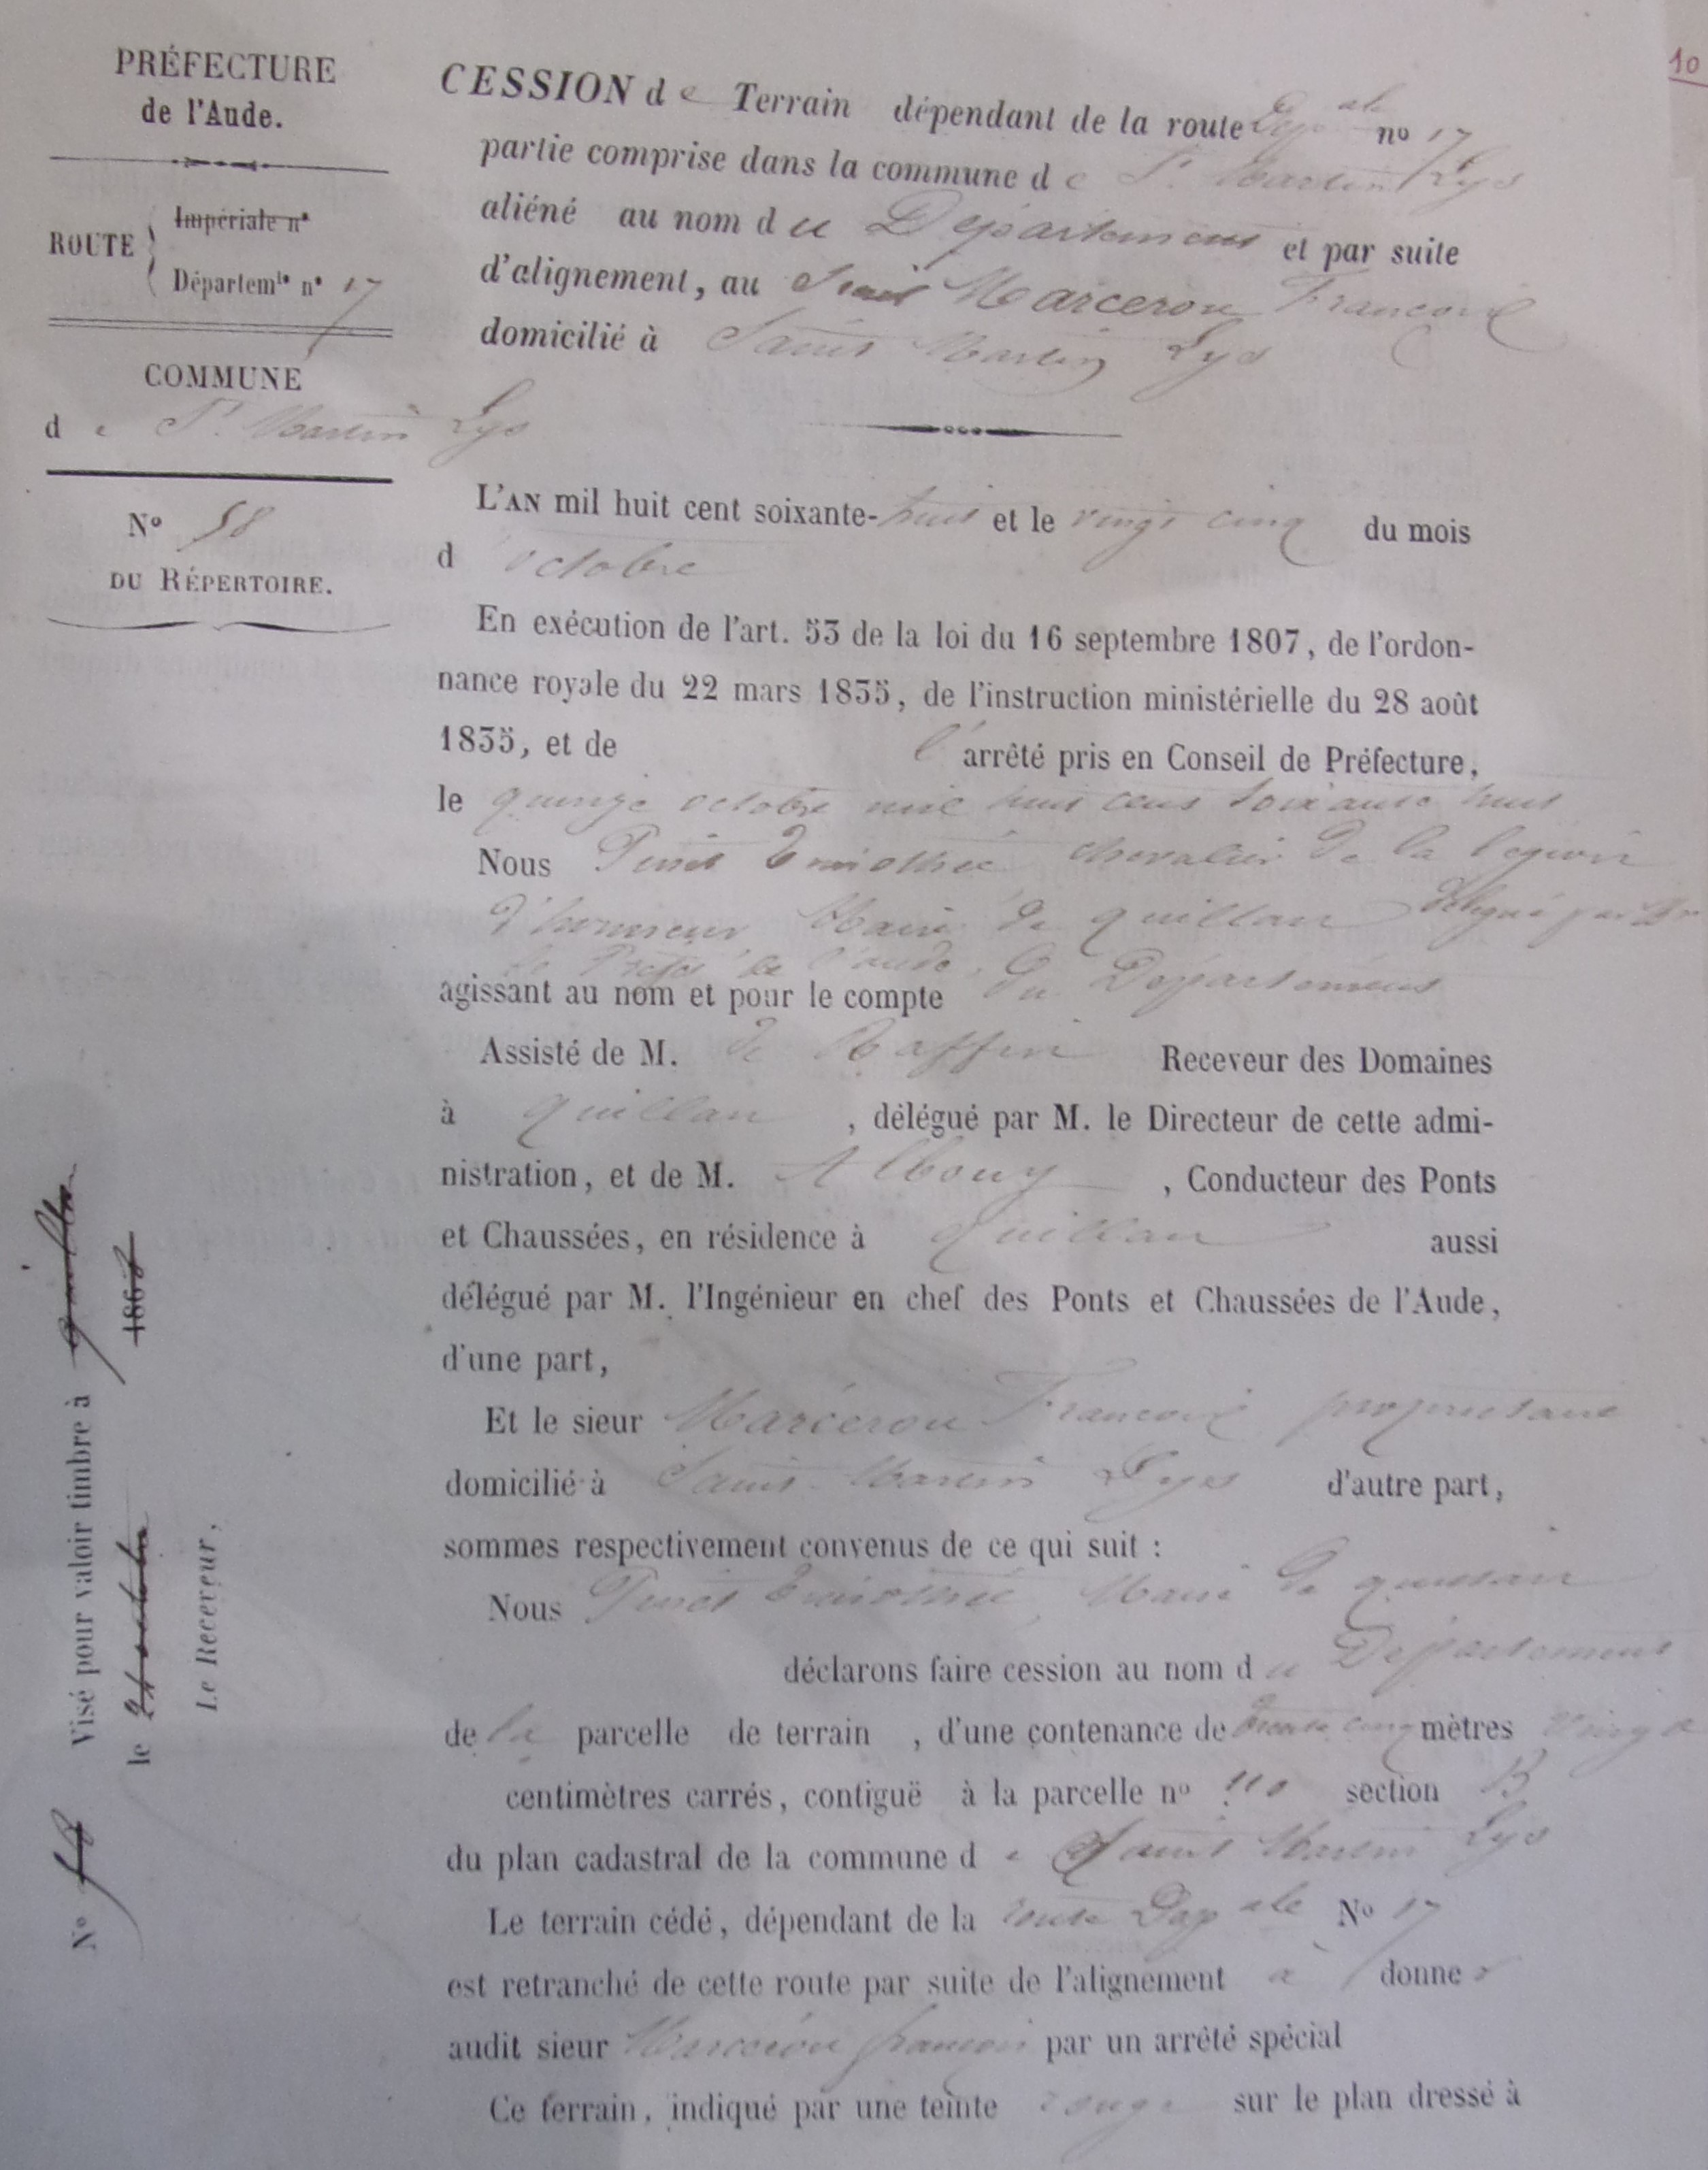 10
PRÉFECTURE
de l'Aude.
ROUTE
Impériale n°
Départem^le n° 17
COMMUNE
d e S^t Martin Lys
N° 58
DU RÉPERTOIRE.
CESSION d e Terrain dépendant de la route Dep^ale n° 17
partie comprise dans la commune d e S^t Martin Lys
aliéné au nom d u Département et par suite
d'alignement, au Marcerou François
domicilié à Saint Martin Lys
L'AN mil huit cent soixante-huit et le vingt cinq du mois
d 'octobre
En exécution de l'art. 53 de la loi du 16 septembre 1807, de l'ordon-
nance royale du 22 mars 1835, de l'instruction ministérielle du 28 août
1835, et de l' arrêté pris en Conseil de Préfecture,
le quinze octobre mil huit cent soixante huit
Nous Pinet chevalier de la legion
d'honneur Maire de quillan délégué par
le Préfet de l'aude
agissant au nom et pour le compte du Departement
Assisté de M. de Raffin Receveur des Domaines
à quillan , délégué par M. le Directeur de cette admi-
nistration, et de M. Albouy , Conducteur des Ponts
et Chaussées, en résidence à quillan aussi
délégué par M. l'Ingénieur en chef des Ponts et Chaussées de l'Aude,
d'une part,
Et le sieur Marcerou François propriétaire
domicilié à Saint Martin Lys d'autre part,
sommes respectivement convenus de ce qui suit :
Nous Pinet Maire de quillan
déclarons faire cession au nom d u Département
de la parcelle de terrain , d'une contenance de trente cinq mètres vingt
centimètres carrés, contiguë à la parcelle n° 110 section B
du plan cadastral de la commune d e Saint Martin Lys
Le terrain cédé, dépendant de la route Dep^ale N° 17
est retranché de cette route par suite de l'alignement à donner
audit sieur Marcerou françois par un arrêté spécial
Ce terrain, indiqué par une teinte rouge sur le plan dressé à
N° 58 Visé pour valoir timbre à quillan
le octobre 1868
Le Receveur,